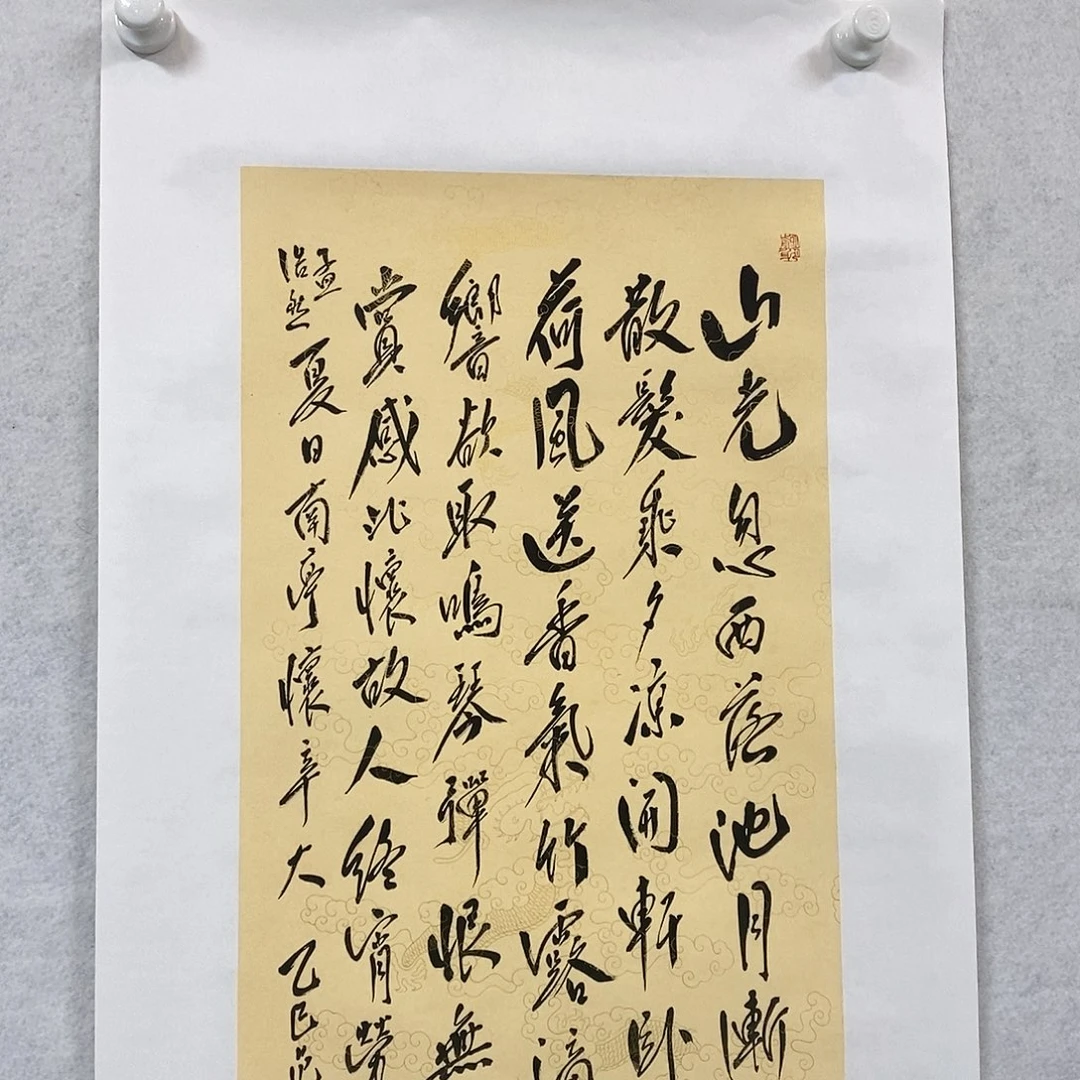 山光忽西落池月漸
散髮乘夕涼開軒臥
荷風送香氣竹露滴
響欲取鳴琴彈恨無
賞感此懷故人終宵勞
孟浩然夏日南亭懷辛大 乙巳